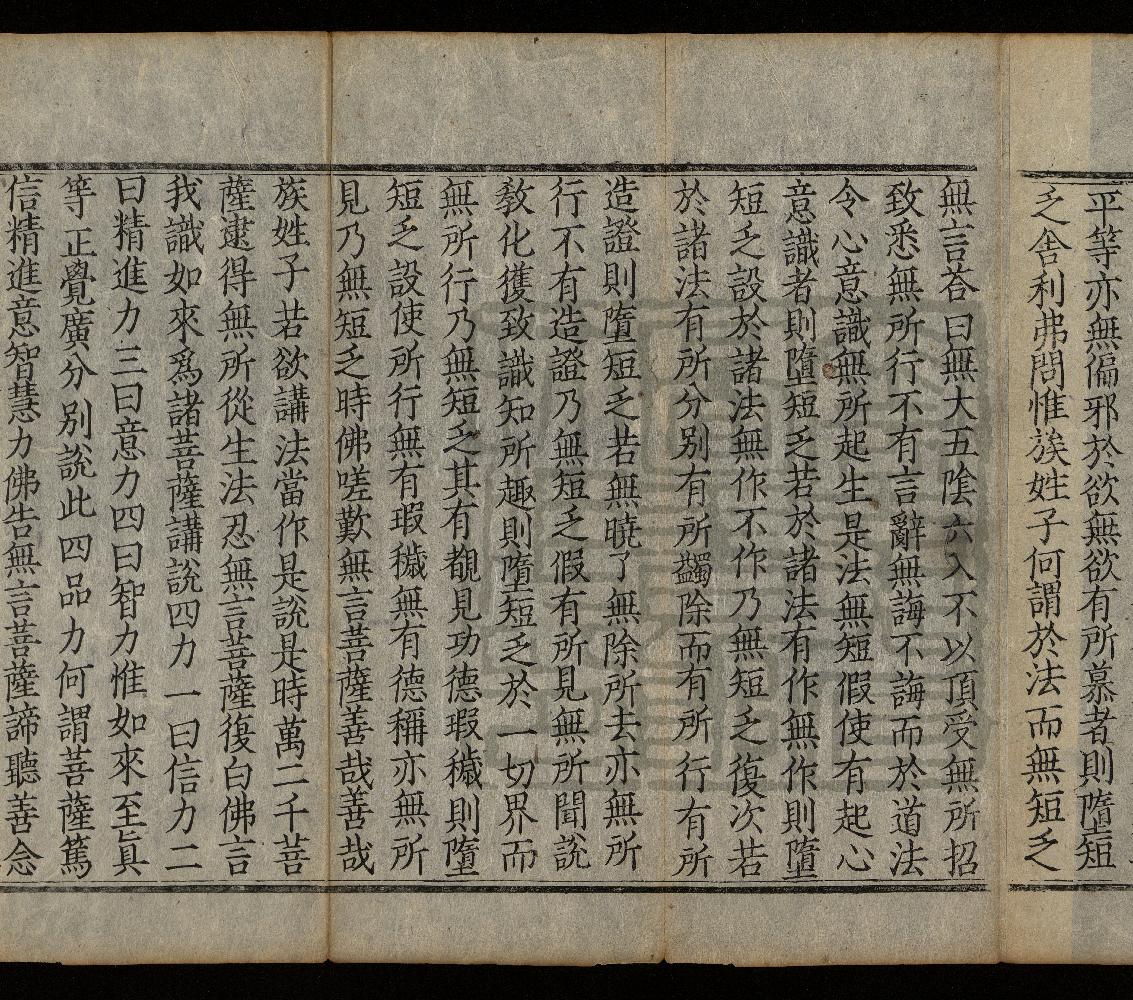 平等亦無偏邪於欲無欲有所慕者則墮短
乏舍利弗問惟族姓子何謂於法而無短乏
無言荅曰無大五陰六入不以頂受無所招
致悉無所行不有言辭無誨不誨而於道法
令心意識無所起生是法無短假使有起心
意識者則墮短乏若於諸法有作無作則墮
短乏設於諸法無作不作乃無短乏復次若
於諸法有所分别有所蠲除而有所行有所
造證則墮短乏若無曉了無除所去亦無所
行不有造證乃無短乏假有所見無所聞説
敎化獲致識知所趣則墮短乏於一切界而
無所行乃無短乏其有覩見功德瑕穢則墮
短乏設使所行無有瑕穢無有德稱亦無所
見乃無短乏時佛嗟歎無言菩薩善哉善哉
族姓子若欲講法當作是說是時萬二千菩
薩逮得無所從生法忍無言菩薩復白佛言
我識如來爲諸菩薩講說四力一曰信力二
曰精進力三曰意力四曰智力惟如來至眞
等正覺廣分别說此四品力何謂菩薩篤
信精進意智慧力佛告無言菩薩諦聽善念